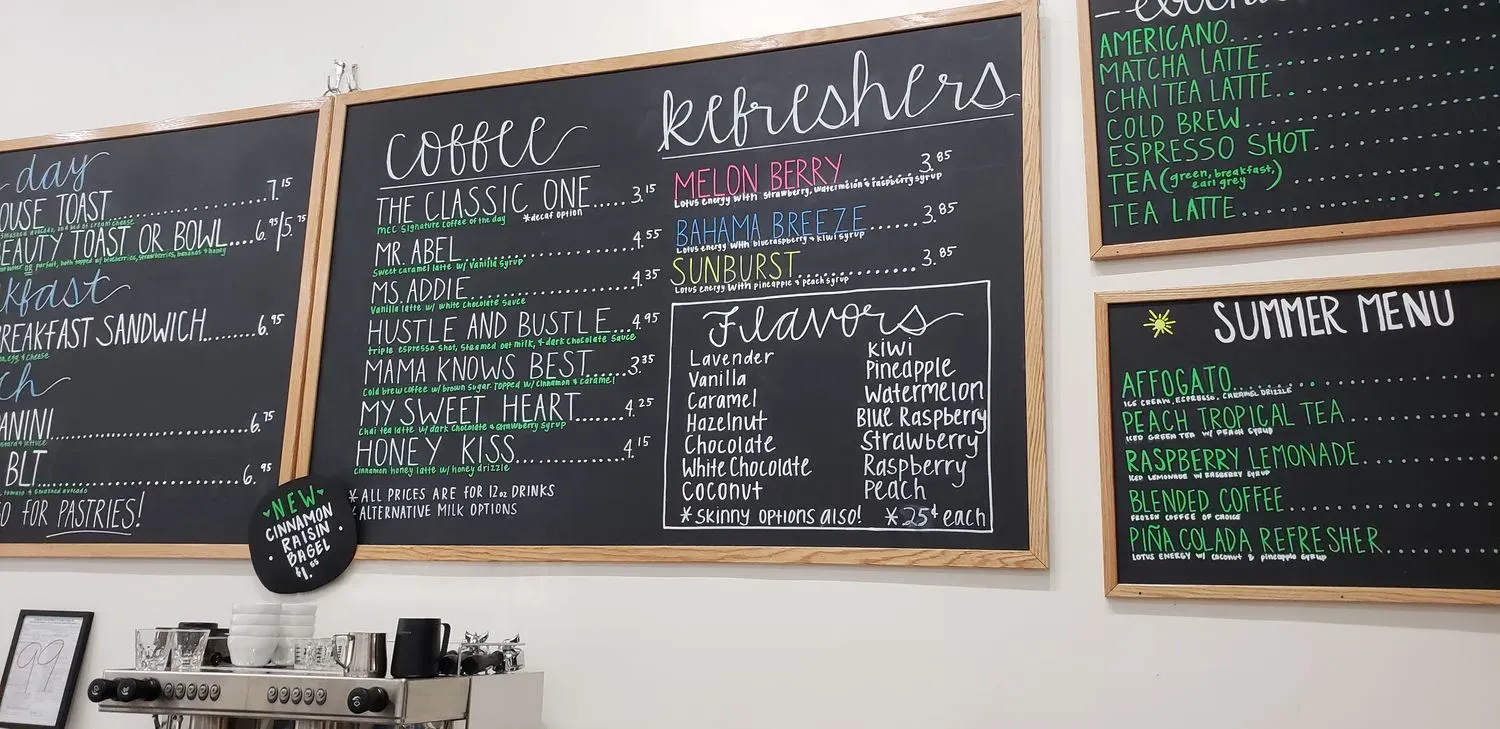 day
OUSE TOAST 7.15
EAUTY TOAST OR BOWL....6.95/5.75
OR parfait, both topped w/ blueberries, strawberries, bananas & honey
kfast
BREAKFAST SANDWICH 6.95
egg & cheese
ch
PANINI 6.75
BLT 6.95
tomato & smashed avocado
FOR PASTRIES!
NEW
CINNAMON
RAISIN
BAGEL
99
coffee
THE CLASSIC ONE.....3.15
MCC Signature Coffee of the day *decaf option
MR. ABEL 4.55
Sweet caramel latte w/ vanilla syrup
MS. ADDIE 4.35
Vanilla latte w/ white chocolate sauce
HUSTLE AND BUSTLE...4.95
triple espresso shot, steamed oat milk, & dark chocolate sauce
MAMA KNOWS BEST......3.35
Cold brew coffee w/ brown sugar. Topped w/ cinnamon & caramel
MY SWEET HEART......4.25
Chai tea latte w/ dark chocolate & strawberry syrup
HONEY KISS 4.15
Cinnamon honey latte w/ honey drizzle
*ALL PRICES ARE FOR 12oz DRINKS
*ALTERNATIVE MILK OPTIONS
Refreshers
MELON BERRY 3.85
Lotus energy with strawberry, watermelon & raspberry syrup
BAHAMA BREEZE 3.85
Lotus energy with blueraspberry & kiwi syrup
SUNBURST 3.85
Lotus energy with pineapple & peach syrup
Flavors
Lavender
Vanilla
Caramel
Hazelnut
Chocolate
White Chocolate
Coconut
Kiwi
Pineapple
Watermelon
Blue Raspberry
Strawberry
Raspberry
Peach
*Skinny options also! *25¢ each
AMERICANO
MATCHA LATTE
CHAI TEA LATTE
COLD BREW
ESPRESSO SHOT
TEA (green, breakfast,
earl grey)
TEA LATTE
SUMMER MENU
AFFOGATO
ICE CREAM, ESPRESSO, CARAMEL DRIZZLE
PEACH TROPICAL TEA
ICED GREEN TEA W/ PEACH SYRUP
RASPBERRY LEMONADE
ICED LEMONADE W/ RASBERRY SYRUP
BLENDED COFFEE
FROZEN COFFEE OF CHOICE
PIÑA COLADA REFRESHER
LOTUS ENERGY W/ coconut & pineapple syrup